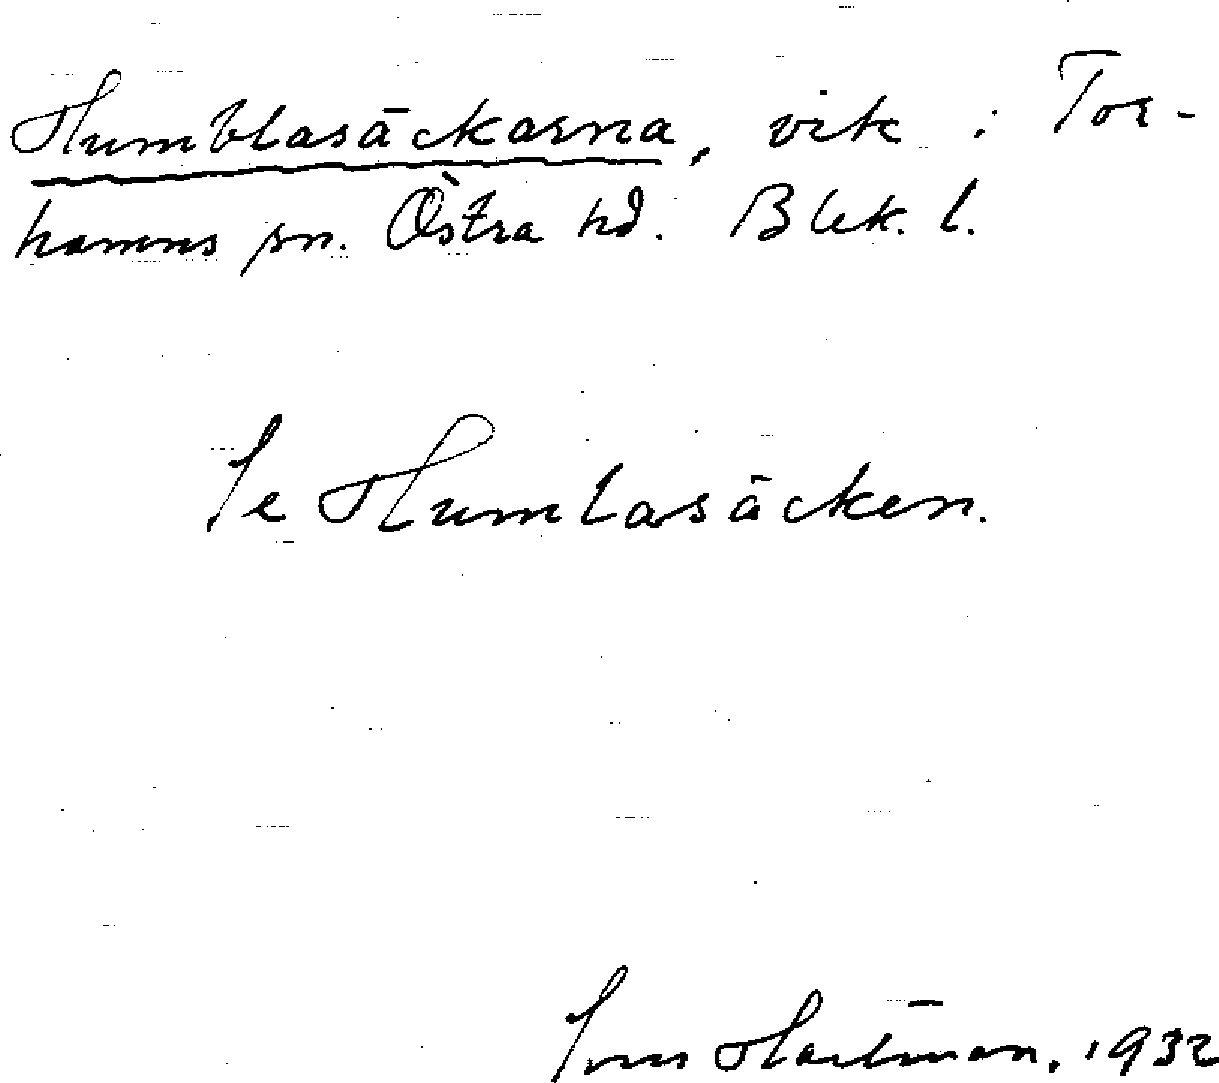 Humblasäckarna, vik i Tor-
hamns sn. Östra hd. Blek. l.
Se Humlasäcken.
Hartman, 1932